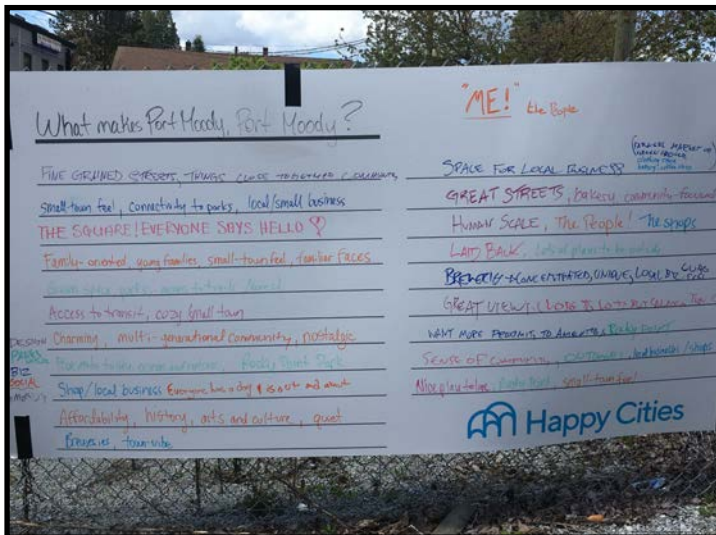 What makes Port Moody, Port Moody?
FINE GRAINED STREETS, THINGS CLOSE TOGETHER
small-town feel, connectivity to parks, local/small business
THE SQUARE! EVERYONE SAYS HELLO
Family-oriented, young families, small-town feel, familiar faces
Access to transit, cozy small town
Charming, multi-generational community, nostalgic
Rocky Point Park
Shop/local business Everyone has a dog & is out and about
Affordability, history, arts and culture, quiet
Breweries, town-vibe
DESIGN
PARKS
BIZ
SOCIAL
"ME!" the People
SPACE FOR LOCAL BUSINESS
GREAT STREETS, bakery, community-focused
HUMAN SCALE, The People! The shops
LAID BACK, Lots of places to be outside
GREAT VIEW
SENSE OF COMMUNITY, OUTDOORS, local business/shops
Nice place to live, small-town feel
Happy Cities